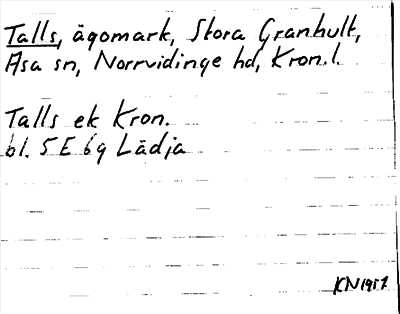 Talls, ägomark, Stora Granhult,
Asa sn, Norrvidinge hd, Kron.l.
Talls ek Kron.
bl. 5 E 6g Lädja
KN 1957